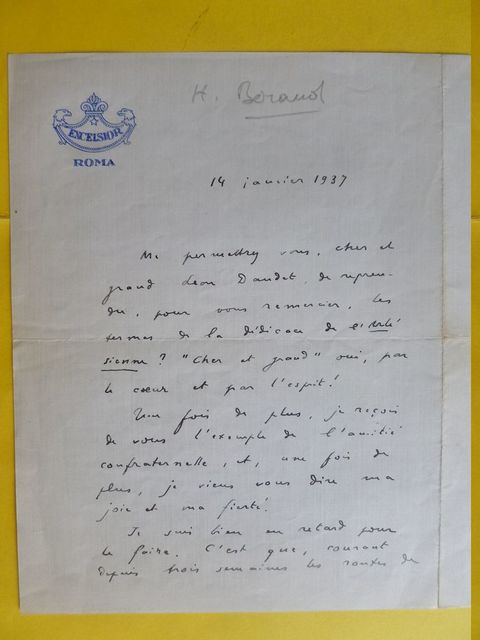 H. Béraud
EXCELSIOR
ROMA
14 janvier 1937
Me permettrez vous, cher et
grand Léon Daudet, de repren-
dre, pour vous remercier, les
termes de la dédicace de
sienne ? "Cher et grand" oui, par
le cœur et par l'esprit !
Une fois de plus, je reçois
de vous l'exemple de l'amitié
confraternelle, et, une fois de
plus, je viens vous dire ma
joie et ma fierté.
Je suis bien en retard pour
le faire. C'est que, courant
depuis trois semaines les routes de